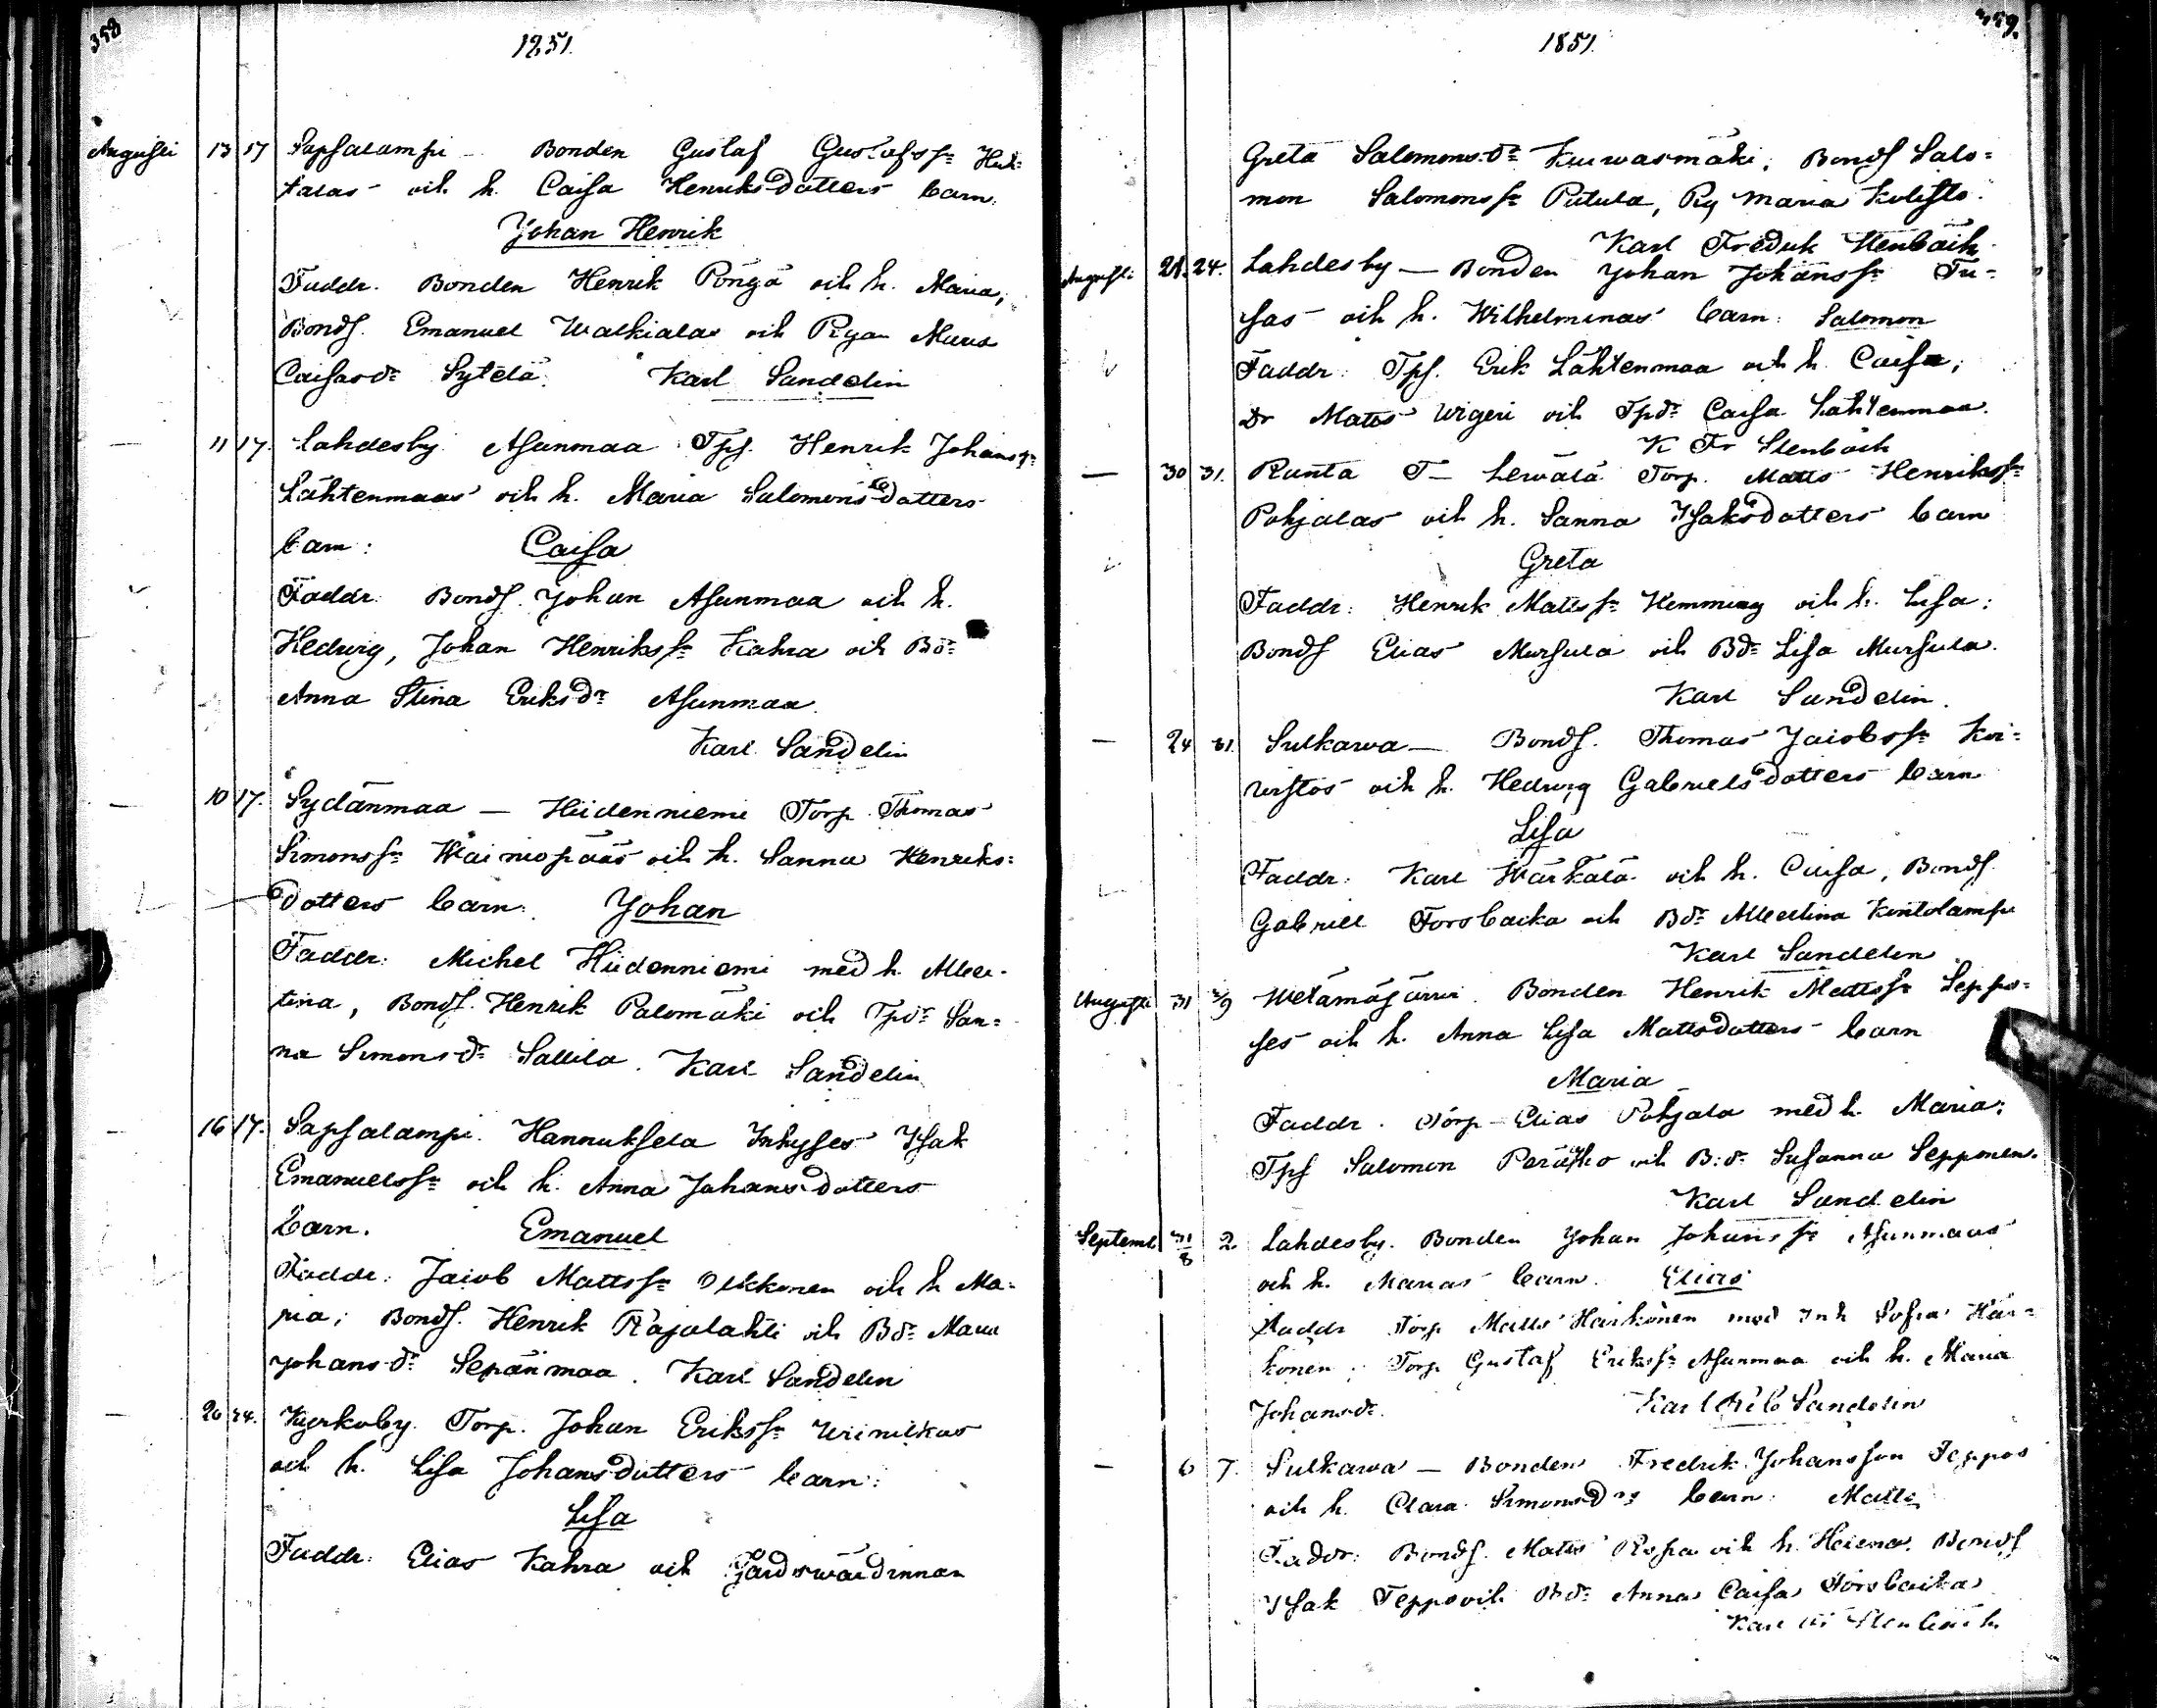 358
1851.
Augusti 13 17 Sapsalampi – Bonden Gustaf Gustafss:n Huh=
talas och h. Caisa Henriksdotters barn:
Johan Henrik
Faddr. Bonden Henrik Pöngä och h. Maria;
Bonds. Emanuel Walkiala och Pigan Maria
Caisasd:r Sytelä. Karl Sandelin
— 11 17. Lahdesby Asunmaa Tps. Henrik Johanss:n
Lähtenmaas och h. Maria Salomonsdotters
barn: Caisa
Faddr. Bonds. Johan Asunmaa och h.
Hedvig, Johan Henrikss:n Kahra och Bd:r
Anna Stina Eriksd:r Asunmaa.
Karl Sandelin
— 10 17. Sydänmaa — Hiidenniemi Torp. Thomas
Simonss:n Wäiniopääs och h. Sanna Henriks=
dotters barn: Johan
Faddr: Michel Hiidenniemi med h. Alber=
tina, Bonds. Henrik Palomäki och Tpd:r San=
na Simonsd:r Sallila. Karl Sandelin
— 16 17. Sapsalampi. Hannuksela Inhyses Isak
Emanuelss:n och h. Anna Johansdotters
barn. Emanuel
Faddr: Jacob Mattss:n Ockkonen och h. Ma=
ria; Bonds. Henrik Rajalahti och Bd:r Maria
Johansd:r Sepänmaa. Karl Sandelin
— 20 24. Kyrkoby. Torp. Johan Erikss:n Wiinikkas
och h. Lisa Johansdotters barn:
Lisa
Faddr: Elias Kahra och Gårdswärdinnan
359.
1851.
Greta Salomonsd:r Kuwasmäki; Bonds Salo=
mon Salomonss:n Putula, Pig Maria Kolisto.
Karl Fredrik Stenbäck
Augusti 21. 24. Lahdesby — Bonden Johan Johanss:n Tu=
sas och h. Wilhelminas barn: Salomon
Faddr: Tps. Erik Lähtenmaa och h. Caisa;
Dr Matts Wigeri och Tpd:r Caisa Lähtenmaa.
K Fr Stenbäck
— 30 31. Ranta T— Lewälä Torp. Matts Henrikss:n
Pohjalas och h. Sanna Isaksdotters barn
Greta
Faddr: Henrik Mattss:n Hemming och h. Lisa;
Bonds Elias Mursula och Bd:r Lisa Mursula.
Karl Sandelin.
— 24 31 Sulkawa — Bonds. Thomas Jacobss:n Koi=
wistos och h. Hedvig Gabrielsdotters barn
Lisa
Faddr: Karl Wärkälä och h. Caisa, Bonds.
Gabriel Forsbacka och Bd:r Albertina Kintolampi
Karl Sandelin
Augusti 31 2/9 Wetämäjärwi. Bonden Henrik Mattss:n Seppä=
ses och h. Anna Lisa Mattsdotters barn
Maria
Faddr. Torp– Elias Pohjala med h. Maria;
Tps Salomon Peräkko och B:d:r Susanna Sepponen.
Karl Sandelin
Septemb 31/8 2. Lahdesby. Bonden Johan Johanss:n Asunmaas
och h. Marias barn. Elias
Faddr Torp Matts Härkönen med Inh Sofia Här=
könen; Torp Gustaf Erikss:n Asunmaa och h. Maria
Johansd:r. Karl Sandelin
— 6 7. Sulkawa — Bonden Fredrik Johansson Teppos
och h. Clara Simonsd:rs barn: Matts
Faddr: Bonds. Matts Ropa och h. Helena. Bonds
Isak Teppo och Bd:r Anna Caisa Forsbacka
Karl Fr Stenbäck